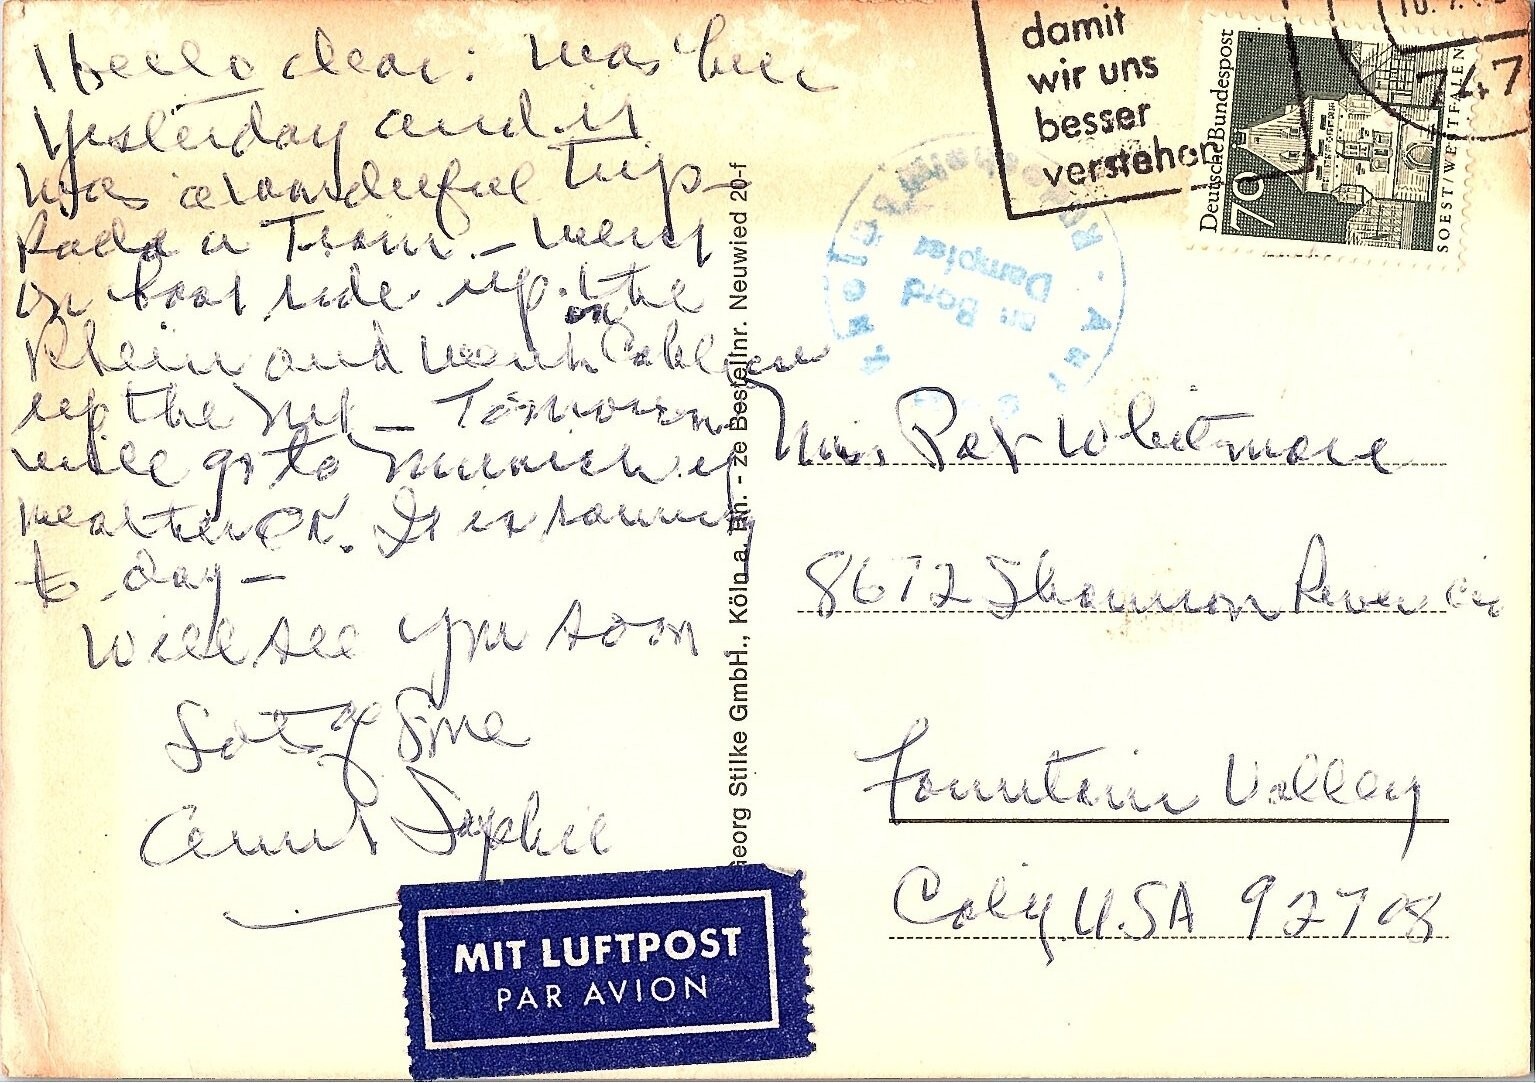 Hello dear: Was here
yesterday and it
was a wonderful trip -
Rode a Train - Went
on boat ride up the
Rhein and went on Cable car
up the Mt - Tomorrow
will go to Munich if
weather OK. It is sunny
to day -
Will see you soon
Lots of Love
Aunt Sophie
damit
wir uns
besser
verstehen
10.
747
Deutsche Bundespost
70
SOEST/WESTFALEN
an Bord
Dampfer
Georg Stilke GmbH., Köln a. Rh. - ze Bestellnr. Neuwied 20-f
Mrs. Pat Whitmore
8672 Shannon River Cir
Fountain Valley
Calif. U.S.A 92708
MIT LUFTPOST
PAR AVION